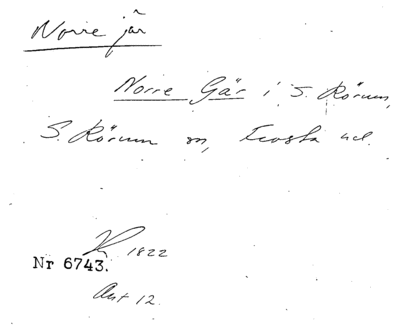 Norre jär
Norre Gär i S. Rörum,
S. Rörum sn, Frosta hd.
K 1822
Nr 6743.
Akt 12